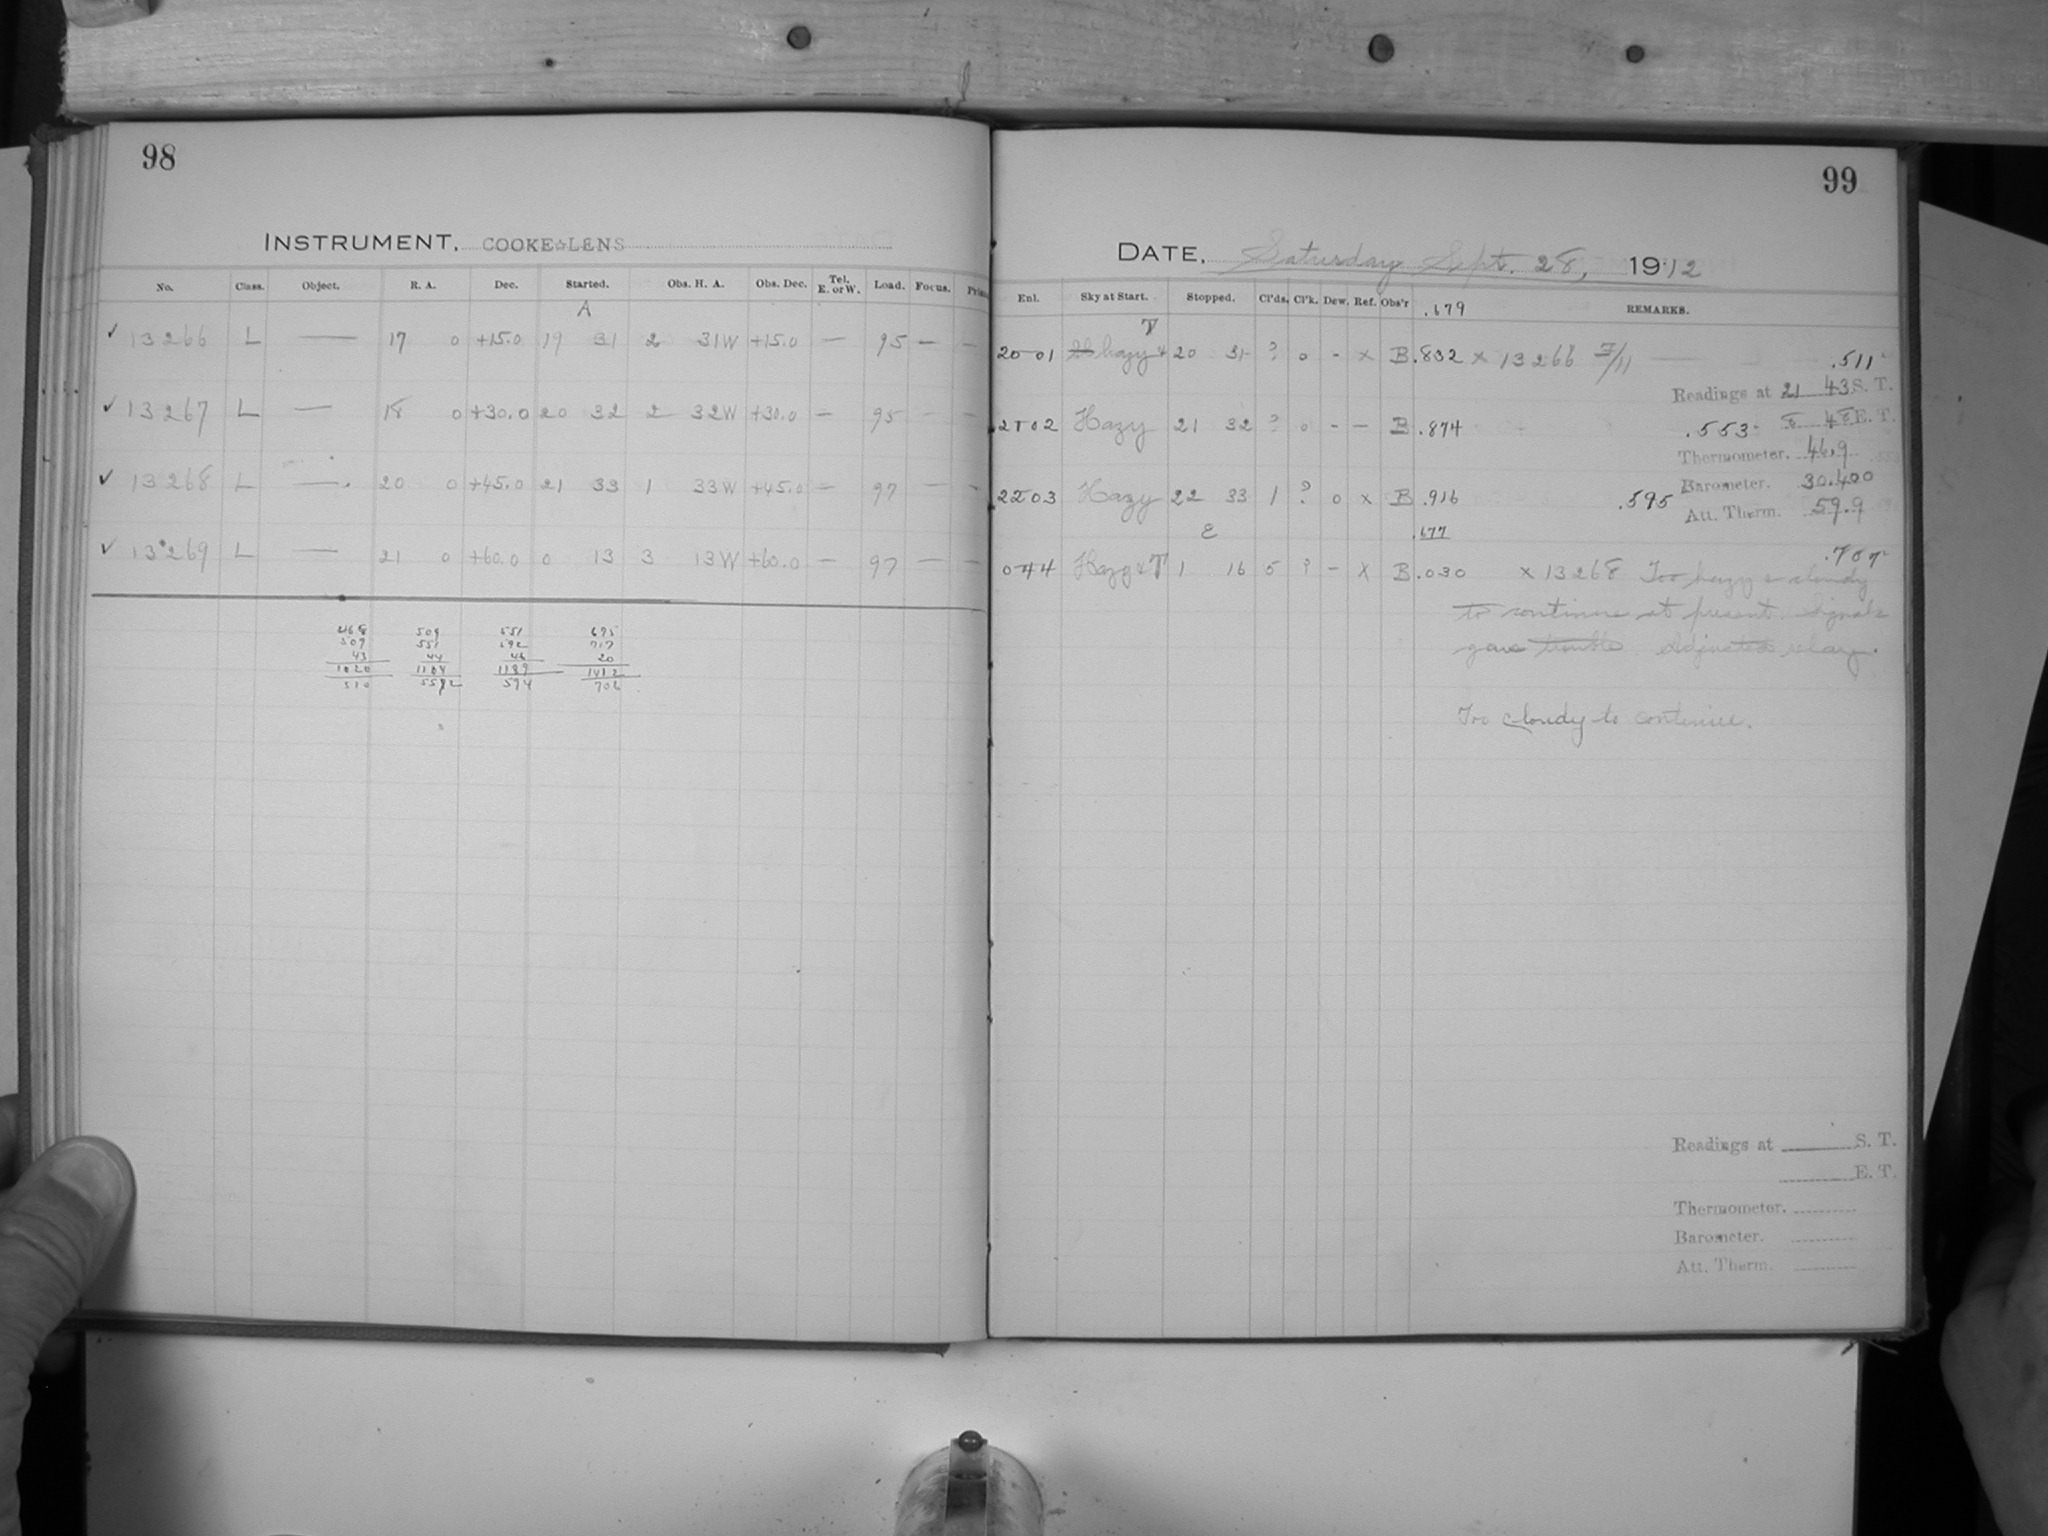 98
INSTRUMENT, COOKE LENS
No. Class. Object. R. A. Dec. Started. Obs. H. A. Obs. Dec. Tel. E. or W. Load. Focus.
A
✓ 13266 L — 17 0 +15.0 19 31 2 31W +15.0 — 95 — —
✓ 13267 L — 18 0 +30.0 20 32 2 32W +30.0 — 95 — —
✓ 13268 L — 20 0 +45.0 21 33 1 33W +45.0 — 97 — —
✓ 13269 L — 21 0 +60.0 0 13 3 13W +60.0 — 97 — —
468 509 551 695
509 551 592 717
43 44 46 20
1020 1104 1189 1412
510 552 594 706
99
DATE, Saturday Sept. 28, 1912
Enl. Sky at Start. Stopped. Cl'ds. Cl'k. Dew. Ref. Obs'r .679 REMARKS.
T
20 01 hazy + 20 31 ? 0 - x B .832 x 13266 .511
Readings at 21 43 S. T.
48 E. T.
21 02 Hazy 21 32 ? 0 - — B .874 .553
Thermometer. 46.9
Barometer. 30.400
22 03 Hazy 22 33 1 ? 0 x B .916 .595
Att. Therm. 59.9
E .677
0 44 Hazy & T 1 16 5 ? - x B .030 x 13268 Too hazy & cloudy .707
to continue at present. Signals
gave trouble. Adjusted relay.
Too cloudy to continue.
Readings at S. T.
E. T.
Thermometer.
Barometer.
Att. Therm.